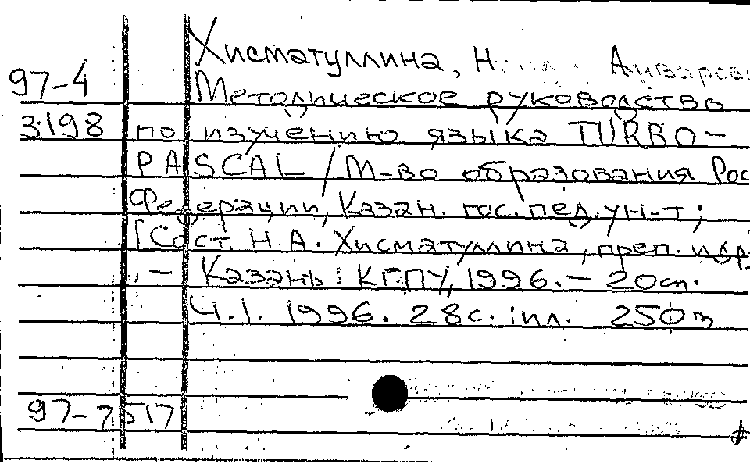 Хисматуллина, Н. Анваров
97-4
Методическое руководство
3198 по изучению языка TURBO-
PASCAL / М-во образования Рос
Федерации, Казан. гос. пед. ун-т;
[Сост. Н. А. Хисматуллина, преп. инф.
. – Казань: КГПУ, 1996. – 20 см.
Ч. 1. 1996. 28 с. : ил. 250 т
97-7517